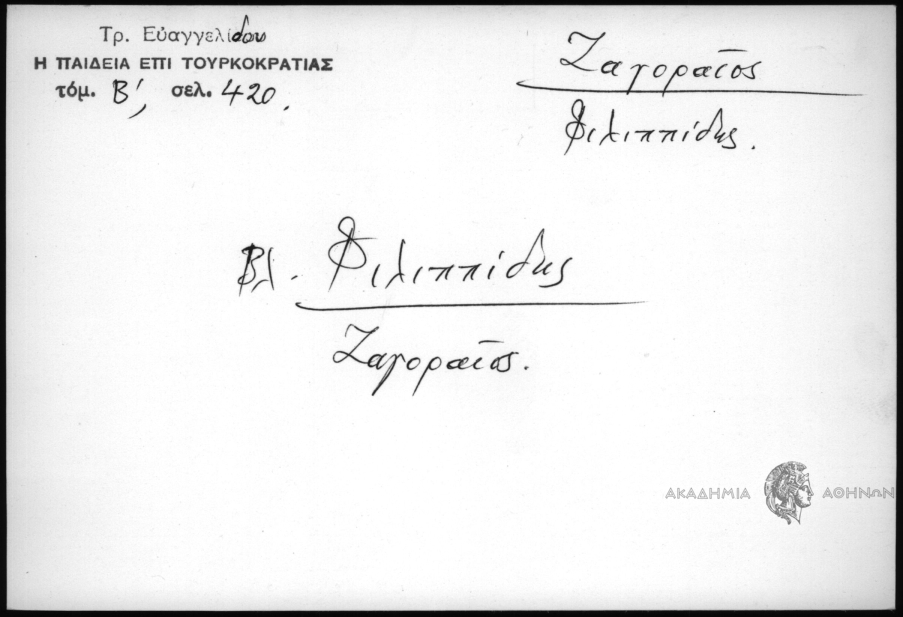 Τρ. Εὐαγγελίδου
Η ΠΑΙΔΕΙΑ ΕΠΙ ΤΟΥΡΚΟΚΡΑΤΙΑΣ
τόμ. Β', σελ. 420.
Ζαγοραῖος
Φιλιππίδης.
Βλ. Φιλιππίδης
Ζαγοραῖος.
ΑΚΑΔΗΜΙΑ ΑΘΗΝΩΝ